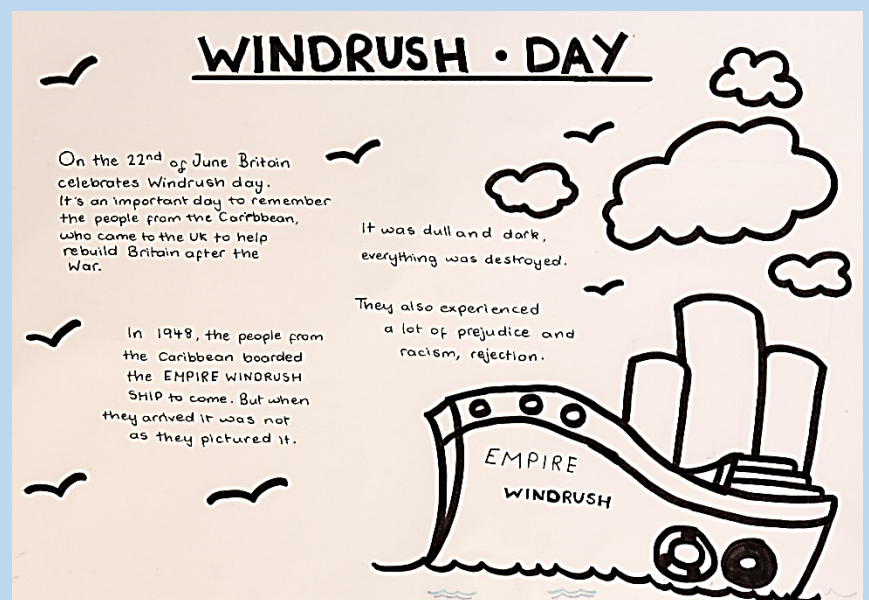 WINDRUSH · DAY
On the 22nd of June Britain
celebrates Windrush day.
It's an important day to remember
the people from the Caribbean,
who came to the UK to help
rebuild Britain after the
War.
In 1948, the people from
the Caribbean boarded
the EMPIRE WINDRUSH
SHIP to come. But when
they arrived it was not
as they pictured it.
It was dull and dark,
everything was destroyed.
They also experienced
a lot of prejudice and
racism, rejection.
EMPIRE
WINDRUSH